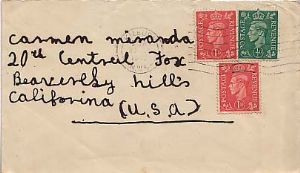 Carmen miranda
20th Centreil Fox
Beaverelhy hills
Califorina
(U.S.A)
POSTAGE REVENUE
POSTAGE REVENUE
POSTAGE REVENUE